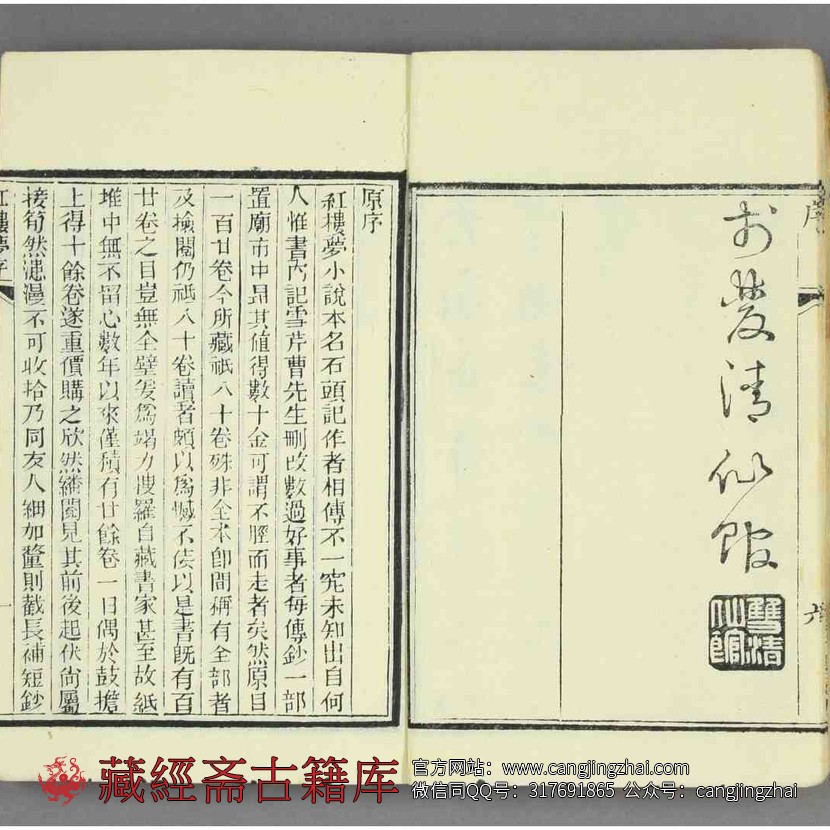 序
於雙清仙館
雙清仙館
六
原序
紅樓夢小說本名石頭記作者相傳不一究未知出自何
人惟書內記雪芹曹先生刪改數過好事者每傳鈔一部
置廟市中昂其值得數十金可謂不脛而走者矣然原目
一百廿卷今所藏祇八十卷殊非全本卽間稱有全部者
及檢閱仍祇八十卷讀者頗以爲憾不佞以是書旣有百
廿卷之目豈無全璧爰爲竭力搜羅自藏書家甚至故紙
堆中無不留心數年以來僅積有廿餘卷一日偶於鼓擔
上得十餘卷遂重價購之欣然繙閱見其前後起伏尙屬
接筍然漶漫不可收拾乃同友人細加釐剔截長補短鈔
紅樓夢序
一
藏經斋古籍库
官方网站：www.cangjingzhai.com
微信同QQ号：317691865 公众号：cangjingzhai